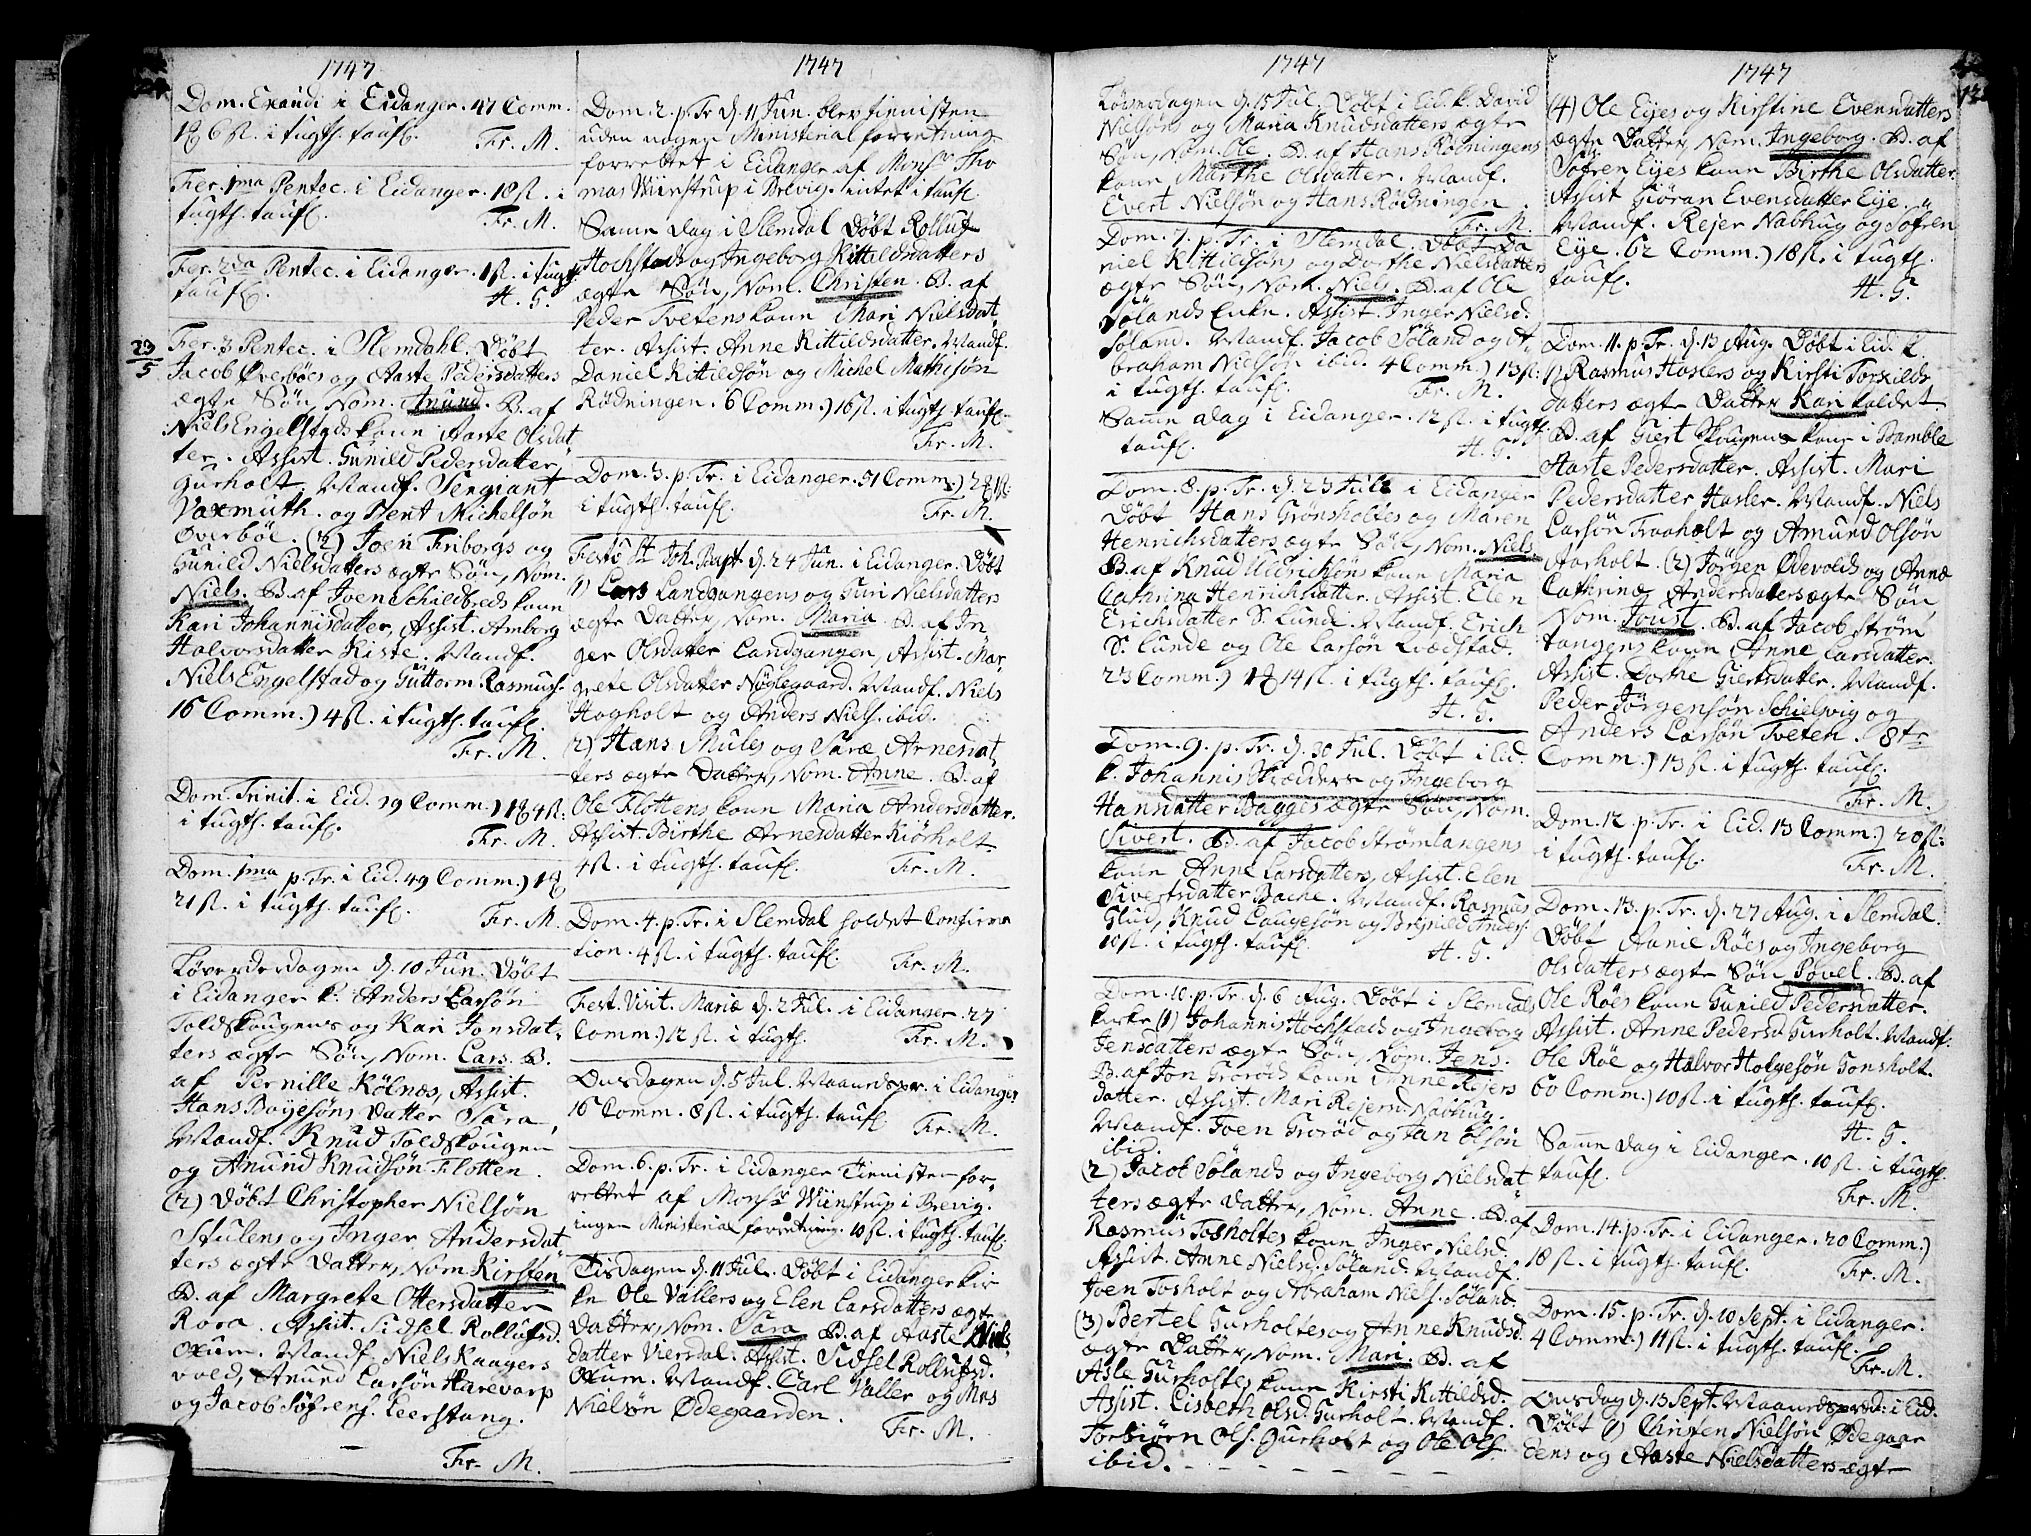 1747
Dom. Exaudi i Eidanger. 47 Comm.
6 sl. i tugth. taufl.
Fr. M.
Fer. 1ma Pentec. i Eidanger. 18 sl. i
tugth. taufl.
Fr. M.
Fer. 2da Pentec. i Eidanger. 1 sl. i tugth.
taufl.
H. G.
23/5
Fer. 3 Pentec. i Slemdahl. Døbt
Jacob Øverböes og Aaste Pedersdatters
ægte Søn, Nom. Anund. B. af
Niels Engelstads kone Aaste Olsdat
ter. Assist. Gunild Pedersdatter
Gurholt. Mandf. Sergiant
Vaxmuth. og Bent Michelsøn
Øverböe. (2) Joen Friborgs og
Gunild Nielsdatters ægte Søn, Nom.
Niels. B. af Joen Schilbreds kone
Kari Johannisdatter, Assist. Amborg
Halvorsdatter Riste. Mandf.
Niels Engelstad og Guttorm Rasmus.
16 Comm.) 4 sl. i tugth. taufl.
Fr. M.
Dom. Trinit. i Eid. 29 Comm.) 4 sl.
i tugth. taufl.
Fr. M.
Dom. 1ma p. Tr. i Eid. 49 Comm.)
21 sl. i tugth. taufl.
Fr. M.
Løverdagen d. 10 Jun. Døbt
i Eidanger k. Anders Larsøn
Toldskougens og Kari Jonsdat
ters ægte Søn, Nom. Lars. B.
af Pernille Kölnæs, Assist.
Hans Boyesøns Datter Sara,
Mandf. Knud Toldskougen
og Anund Knudsøn Flotten.
(2) Døbt Christopher Nielsøn
Stulens og Inger Andersdat
ters ægte Datter, Nom. Kirsten
B. af Margrete Ottersdatter
Rora. Assist. Sidsel Rollufsd.
Oxum. Mandf. Niels Kaagers
vold, Anund Larsøn Harevarp
og Jacob Söfrens. Leerstang.
Fr. M.
1747
Dom. 2. p. Tr. d. 11 Jun. blev tienisten
uden nogen Ministerial forretning
forrettet i Eidanger af Monsr. Tho
mas Winstrup i Brevig. intet i taufl.
Samme Dag i Slemdal Døbt Rolluf
Hochstads og Ingeborg Kittilsdatters
ægte Søn, Nom. Christen. B. af
Peder Tvetens kone Mari Nielsdat
ter. Assist. Anne Kittildsdatter. Mandf.
Daniel Kittildsøn og Michel Mathesøn
Rødningen. 6 Comm.) 16 sl. i tugth. taufl.
Fr. M.
Dom. 3. p. Tr. i Eidanger. 51 Comm.)
i tugth. taufl.
Fr. M.
Festo St. Joh. Bapt. d. 24 Jun. i Eidanger. Døbt
(1) Lars Landgangens og Guri Nielsdatters
ægte Datter, Nom. Maria. B. af In
ger Olsdatter Landgangen, Assist. Mar
grete Olsdatter Nøglegaard. Mandf. Niels
Hogholt og Anders Niels. ibid.
2) Hans Mules og Saræ Arnesdat
ters ægte Datter, Nom. Anne. B. af
Ole Flottens kone Maria Andersdatter.
Assist. Birthe Arnesdatter Kiörholt.
4 sl. i tugth. taufl.
Fr. M.
Dom. 4. p. Tr. i Slemdal holdet Confirma
tion. 4 sl. i tugth. taufl.
Fr. M.
Fest. Visit. Mariæ d. 2 Jul. i Eidanger. 27
Comm.) 12 sl. i tugth.
Fr. M.
Onsdagen d. 5 Jul. Maanedspr. i Eidanger
16 Comm. 2 sl. i tugth. taufl.
Fr. M.
Dom. 6. p. Tr. i Eidanger Tienisten for
rettet af Monsr. Winstrup i Brevig.
ingen Ministerial forretning. 10 sl. i tugth. taufl.
Tisdagen d. 11 Jul. Døbt i Eidanger kir
ke Ole Vallers og Elen Larsdatters ægte
Datter, Nom. Sara. B. af Aaste Niels
datter Viersdal. Assist. Sidsel Rollufsd.
Oxum. Mandf. Carl Valler og Mns
Nielsøn Ødegaarden.
Fr. M.
1747
Løverdagen d. 15 Jul. Døbt i Eid. k. David
Nielsøns og Maria Knudsdatters ægte
Søn, Nom. Ole. B. af Hans Rødningens
kone Marthe Olsdatter. Mandf.
Evert Nielsøn og Hans Rødningen.
Fr. M.
Dom. 7. p. Tr. i Slemdal. Døbt Da
niel Kittilsøns og Dorthe Nielsdatters
ægte Søn, Nom. Niels. B. af Ole
Sølands Enke. Assist. Inger Nielsd.
Søland. Mandf. Jacob Søland og A
braham Nielsøn ibid. 4 Comm.) 13 sl.
i tugth. taufl.
Fr. M.
Samme Dag i Eidanger. 12 sl. i tugth.
taufl.
H. G.
Dom. 8. p. Tr. d. 23 Juli i Eidanger
Døbt Hans Grönsholtes og Maren
Henrichsdatters ægte Søn, Nom. Niels.
B. af Knud Uldrichsøns kone Maria
Cathrina Henrichsdatter. Assist. Elen
Erichsdatter S. Lunde. Mandf. Erich
S. Lunde og Ole Larsøn Lvedstad.
23 Comm.) 14 sl. i tugth. taufl.
H. G.
Dom. 9. p. Tr. d. 30 Jul. Døbt i Eid.
k. Johannis Skrædders og Ingeborg
Hansdatter Bagges ægte Søn, Nom.
Sivert. B. af Jacob Strømtangens
kone Anne Larsdatters, Assist. Elen
Sivertsdatter Bache. Mandf. Rasmus
Glud, Knud Laugesøn og Brynild Anders.
10 sl. i tugth. taufl.
H. G.
Dom. 10. p. Tr. d. 6 Aug. Døbt i Slemdals
kirke (1) Johannis Hochstads og Ingeborg
Jensdatters ægte Søn, Nom. Jens.
B. af Jon Grorøds kone Anne Rejers
datter. Assist. Mari Rejersd. Nabhug.
Mandf. Joen Grorød og Jan Olsøn
ibid.
(2) Jacob Sølands og Ingeborg Nielsdat
ters ægte Datter, Nom. Anne. B. af
Rasmus Tosholtes kone Inger Nielsd.
Assist. Anne Nielsd. Søland. Mandf.
Joen Tosholt og Abraham Niels. Søland.
(3) Bertel Gurholtes og Anne Knudsd.
ægte Datter, Nom. Mari. B. af
Asle Gurholtes kone Kirsti Kittildsd.
Assist. Lisbeth Olsd. Gurholt. Mandf.
Torbiörn Ols. Gurholt og Ole Ols.
ibid.
1747
(4) Ole Eyes og Kirstine Evensdatters
ægte Datter, Nom. Ingeborg. B. af
Söfren Eyes kone Birthe Olsdatter.
Assist. Giöran Evensdatter Eye.
Mandf. Rejer Nabhug og Söfren
Eye. 62 Comm.) 18 sl. i tugth.
taufl.
H. G.
Dom. 11. p. Tr. d. 13 Aug. Døbt i Eid. k.
1) Rasmus Haslers og Kirsti Torkilds
datters ægte Datter Kari kaldet.
B. af Giert Skougens kone i Bamble
Aaste Pedersdatter. Assist. Mari
Pedersdatter Hasler. Mandf. Niels
Larsøn Traaholt og Amund Olsøn
Aarholt. (2) Jörgen Ødevolds og Anne
Cathrinæ Andersdatters ægte Søn,
Nom. Joust. B. af Jacob Ström
tangens kone Anne Larsdatter.
Assist. Dorthe Giertsdatter. Mandf.
Peder Jörgensøn Schielvig og
Anders Larsøn Tveten. 8te
Comm.) 13 sl. i tugth. taufl.
Fr. M.
Dom. 12 p. Tr. i Eid. 13 Comm.) 20 sl.
i tugth. taufl.
Fr. M.
Dom. 13. p. Tr. d. 27 Aug. i Slemdal
Døbt Aanie Röes og Ingeborg
Olsdatters ægte Søn Povel. B. af
Ole Röes kone Gunild Pedersdatter.
Assist. Anne Pedersd. Gurholt. Mandf.
Ole Röe og Halvor Holgesøn Gonsholt.
60 Comm.) 10 sl. i tugth. taufl.
H. G.
Samme Dag i Eidanger. 10 sl. i tugth.
taufl.
Fr. M.
Dom. 14. p. Tr. i Eidanger. 20 Comm.)
18 sl. i tugth. taufl.
Fr. M.
Dom. 15. p. Tr. d. 10 Sept. i Eidanger.
4 Comm.) 11 sl. i tugth. taufl.
Fr. M.
Onsdag d. 13 Sept. Maanedspræd. i Eid.
Døbt (1) Christen Nielsøn Ødegaar
dens og Aaste Nielsdatters ægte